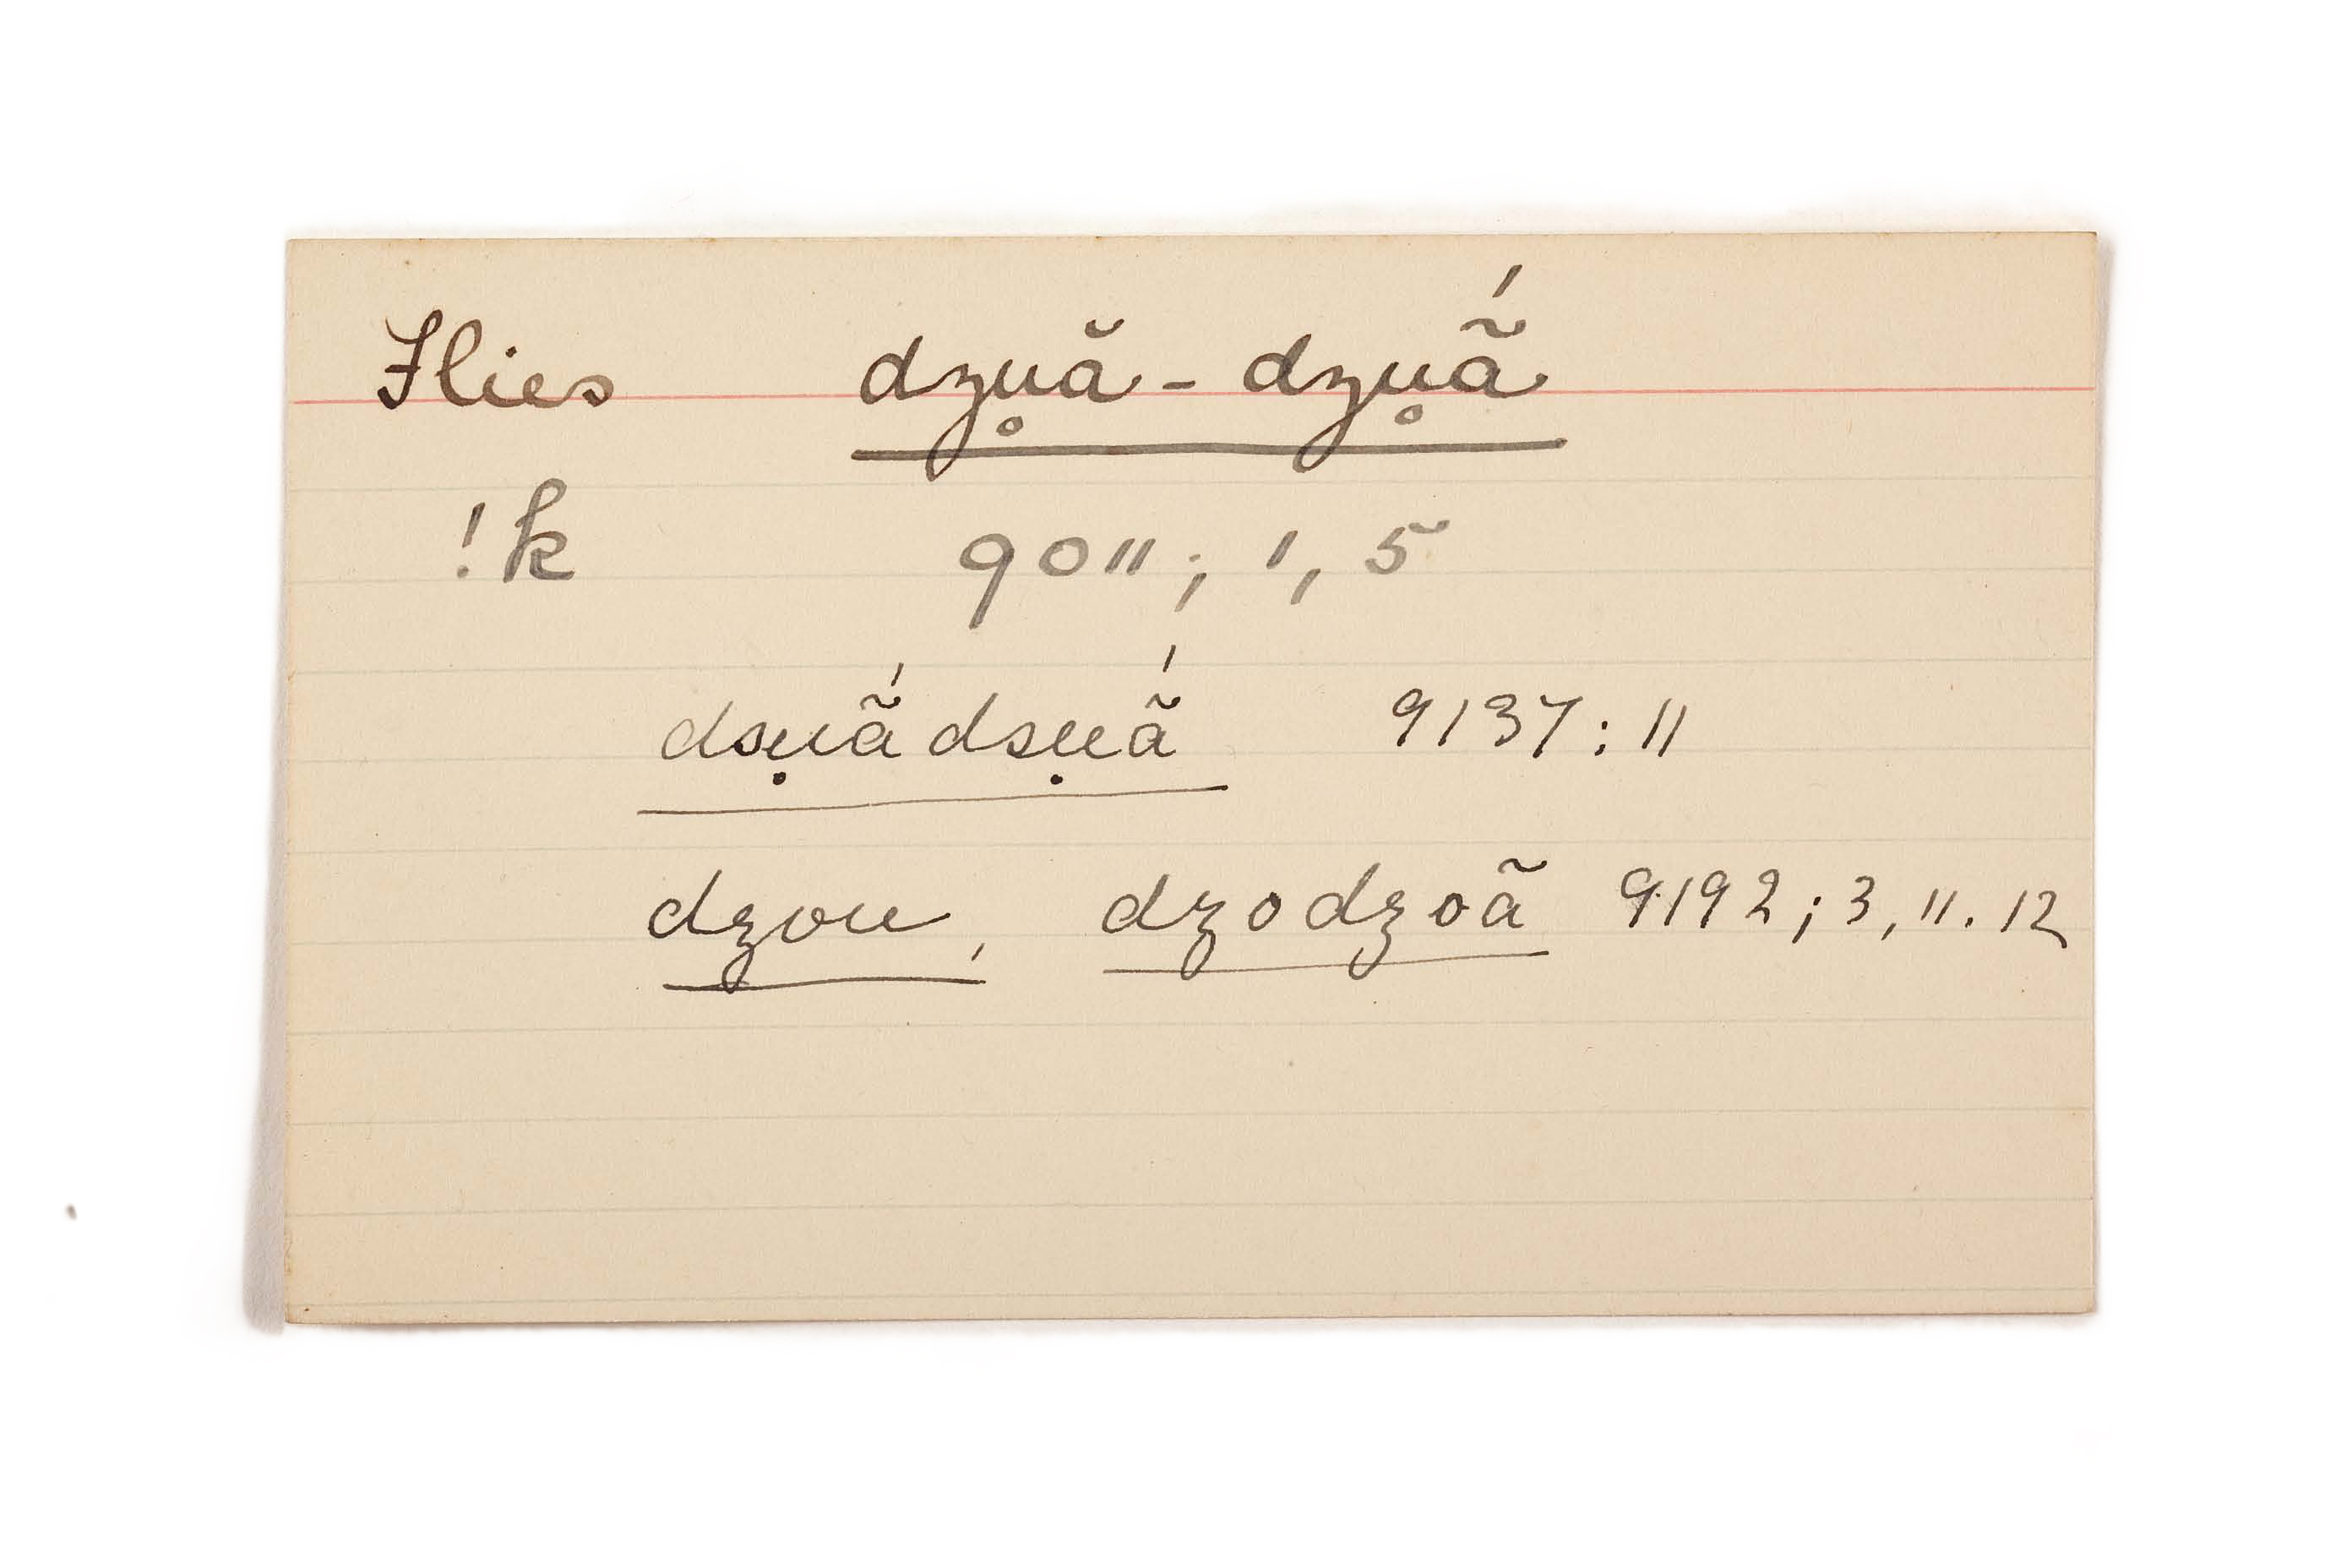 Flies dzu̥ă - dzu̥ã́
!k 9011; 1, 5
dsụã́dsụã́ 9137: 11
dzou, dzodzoã 9192; 3, 11. 12